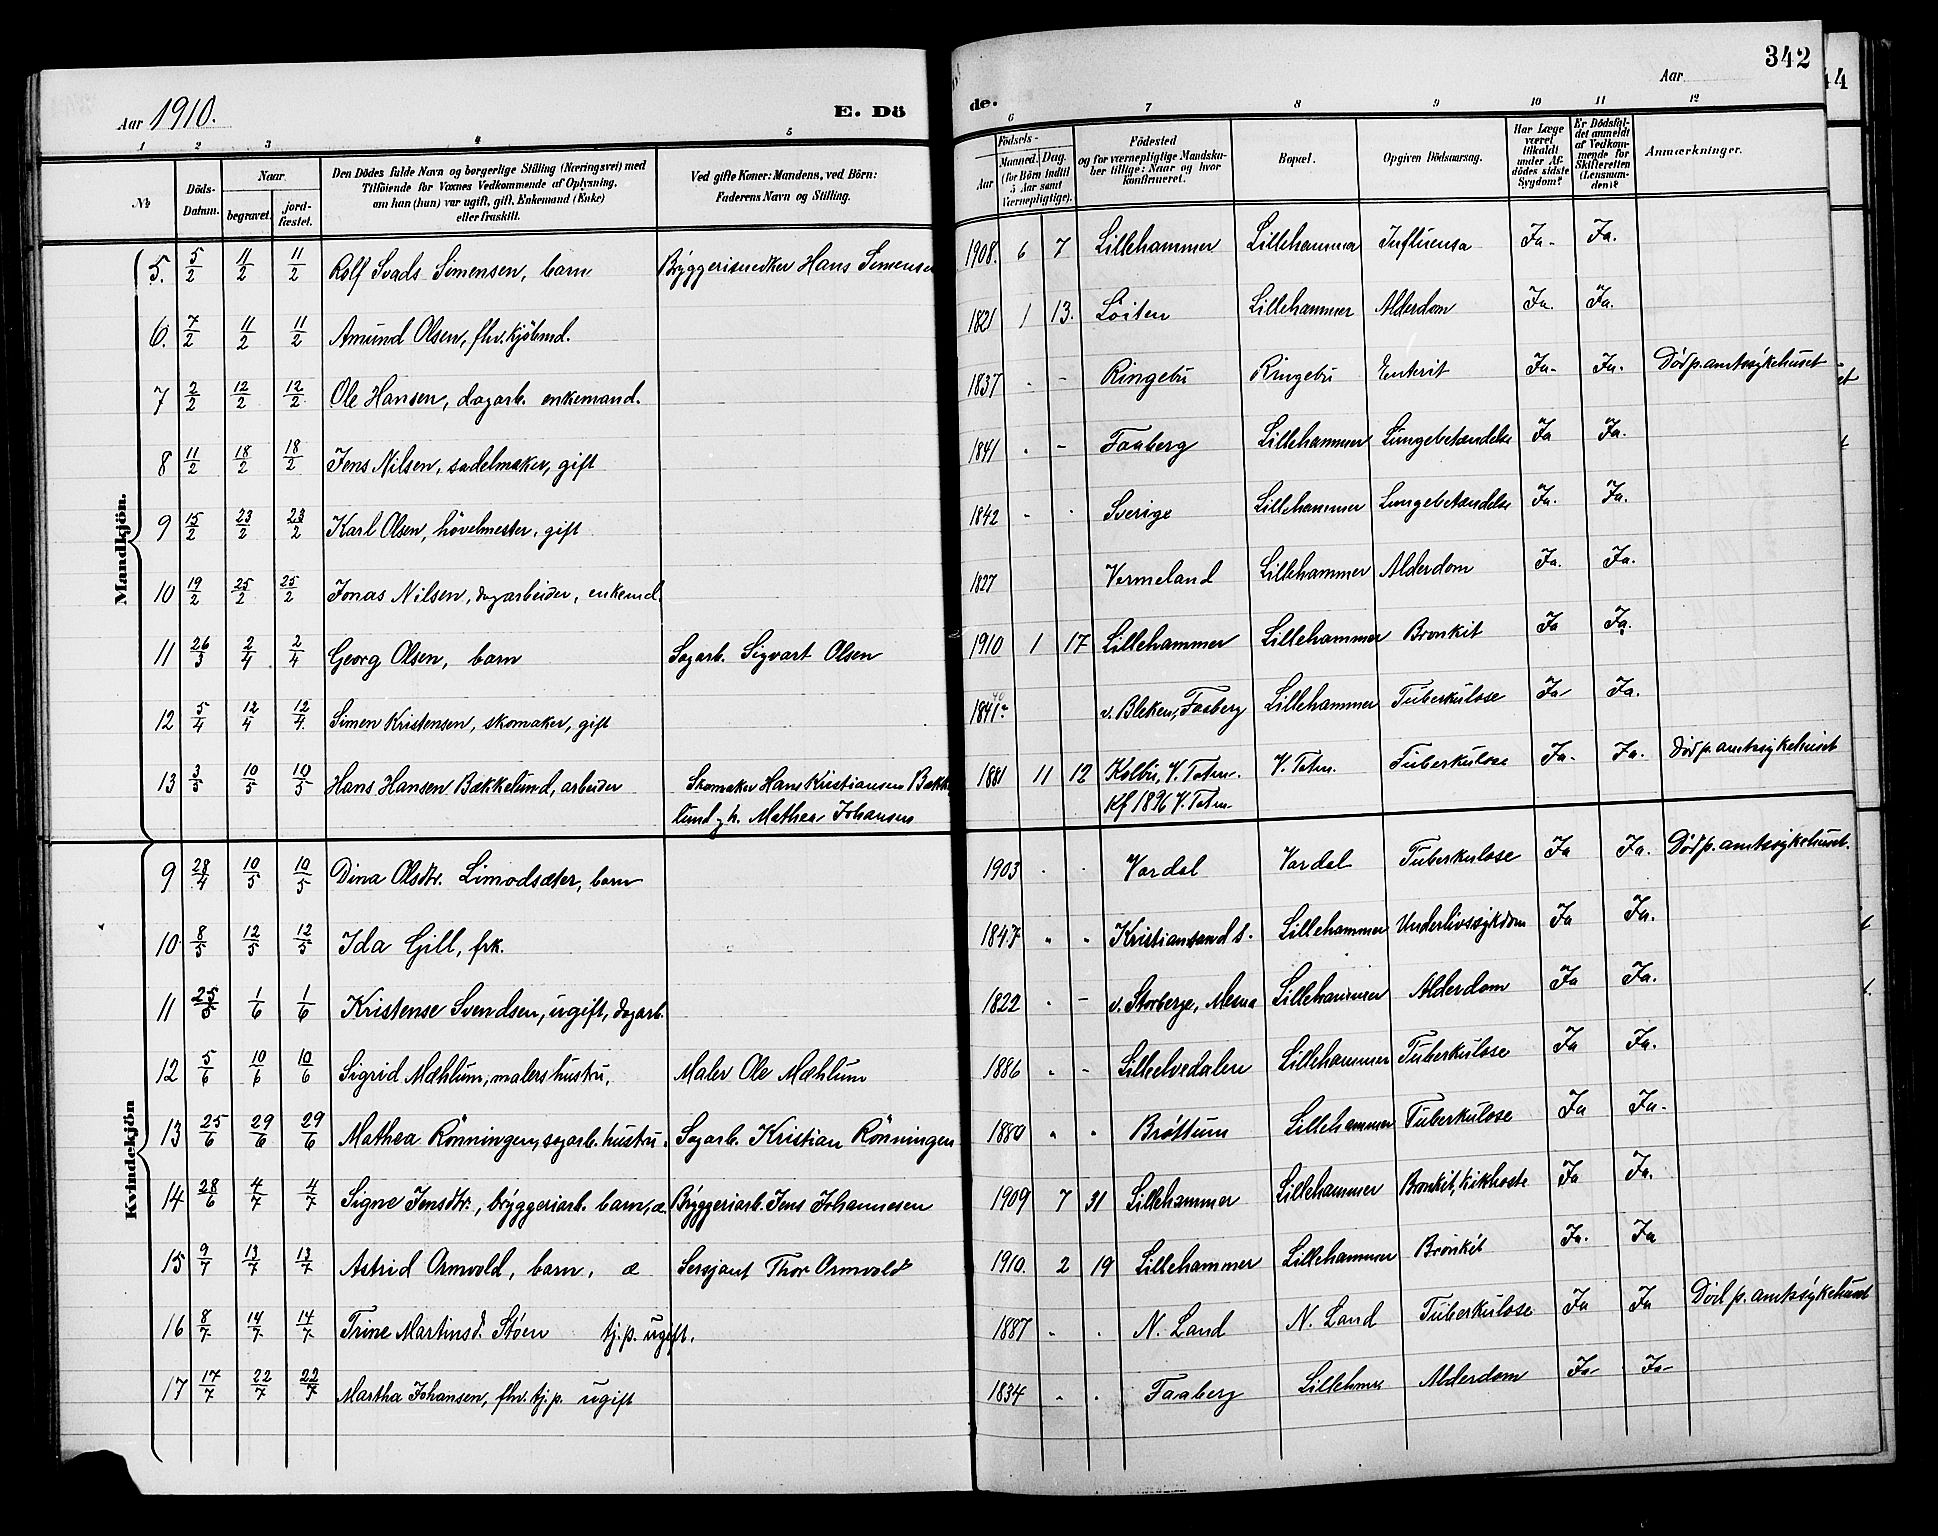 Aar 1910.
E. Dö
de.
Aar
342
1 2 3 4 5 6 7 8 9 10 11 12
№
Döds-Datum.
Naar
begravet.
jord-fæstet.
Den Dödes fulde Navn og borgerlige Stilling (Næringsvei) med
Tilföiende for Voxnes Vedkommende af Oplysning,
om han (hun) var ugift, gift, Enkemand (Enke)
eller fraskilt.
Ved gifte Koner: Mandens, ved Börn:
Faderens Navn og Stilling.
Födsels-
Aar
Maaned. Dag.
(for Börn indtil
5 Aar samt
Værnepligtige).
Födested
og for værnepligtige Mandska-
ber tillige: Naar og hvor
konfirmeret.
Bopæl.
Opgiven Dödsaarsag.
Har Læge
været
tilkaldt
under Af-
dödes sidste
Sygdom?
Er Dödsfal-
det anmeldt
af Vedkom-
mende for
Skifteretten
(Lensman-
den)?
Anmærkninger.
Mandkjön.
5. 5/2 11/2 11/2 Rolf Svads Simensen, barn Bryggerisnedker Hans Simensen 1908. 6 7 Lillehammer Lillehammer Influensa Ja. Ja.
6. 7/2 11/2 11/2 Amund Olsen, fhv. kjöbmd. 1821 1 13. Löiten Lillehammer Alderdom Ja. Ja.
7 2/2 12/2 12/2 Ole Hansen, dagarb. enkemand. 1837 - - Ringebu Ringebu Enterit Ja. Ja. Död p. amtssykehuset
8 11/2 18/2 18/2 Jens Nilsen, sadelmaker, gift 1841 - - Faaberg Lillehammer Lungebetændelse Ja Ja.
9 15/2 23/2 23/2 Karl Olsen, hövelmester, gift 1842 - - Sverige Lillehammer Lungebetændelse Ja. Ja.
10 19/2 25/2 25/2 Jonas Nilsen, dagarbeider, enkemd. 1827 Vermeland Lillehammer Alderdom Ja. Ja.
11 26/3 2/4 2/4 Georg Olsen, barn Sagarb. Sigvart Olsen 1910 1 17 Lillehammer Lillehammer Bronkit Ja Ja.
12 5/4 12/4 12/4. Simen Kristensen, skomaker, gift 1841 40 v. Bleken, Faaberg Lillehammer Tuberkulose Ja Ja.
13 3/5 10/5 10/5 Hans Hansen Bækkelund, arbeider Skomaker Hans Kristiansen Bække 1881 11 12 Kolbu, V. Toten. V. Toten. Tuberkulose Ja. Ja. Död p. amtssykehuset
lund, h. Mathea Johansen Kf 1896 V. Toten
Kvindekjön
9 28/4 10/5 10/5 Dina Olsdtr. Limodsæter, barn 1903 . . Vardal Vardal Tuberkulose Ja Ja. Död p. amtssykehuset.
10 8/5 12/5 12/5 Ida Gill, frk. 1847 " " Kristiansand s. Lillehammer Underlivssykdom Ja Ja.
11 25/5 1/6 1/6 Kristense Svendsen, ugift, dagarb. 1822 . - v. Storberge, Mesna Lillehammer Alderdom Ja Ja.
12 5/6 10/6 10/6 Sigrid Mæhlum, malers hustru, Maler Ole Mæhlum 1886 " - Lilleelvedalen Lillehammer Tuberkulose Ja Ja.
13 25/6 29/6 29/6 Mathea Rönningen, sagarb. hustru. Sagarb. Kristian Rönningen 1880 " " Bröttum Lillehammer Tuberkulose Ja Ja.
14 28/6 4/7 4/7 Signe Jensdtr., bryggeriarb. barn, æ. Bryggeriarb. Jens Johannesen 1909 7 31 Lillehammer Lillehammer Bronkit, kikhoste Ja Ja.
15 9/7 13/7 13/7 Astrid Ormvold, barn, æ Sersjant Thor Ormvold 1910. 2 19 Lillehammer Lillehammer Bronkit Ja. Ja
16 8/7 14/7 14/7 Trine Martinsd. Støen tj.p. ugift. 1887 " . N. Land N. Land Tuberkulose Ja Ja Död p. amtssykehuset
17 17/7 22/7 22/7 Martha Johansen, fhv. tj.p. ugift 1834 " . Faaberg Lilleham Alderdom Ja- Ja-